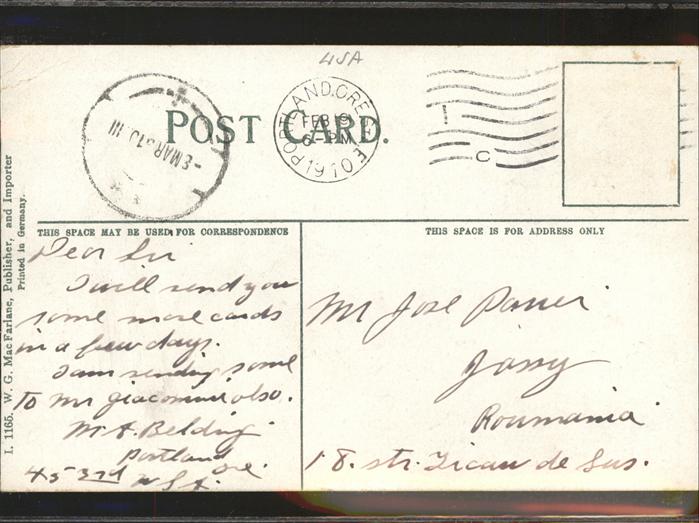 USA
POST CARD.
PORTLAND, ORE. STA. E
FEB 19
6-PM
1910
-8 MAR 10 III
C
THIS SPACE MAY BE USED FOR CORRESPONDENCE
THIS SPACE IS FOR ADDRESS ONLY
I. 1165. W. G. MacFarlane, Publisher, and Importer
Printed in Germany.
Dear Sir
I will send you
some more cards
in a few days.
I am sending some
To Mr Giacomini also.
M. A. Belding
Portland
Ore.
45 3rd
U.S.A.
Mr Jose
Jassy
Roumania
18. str. de Sus.